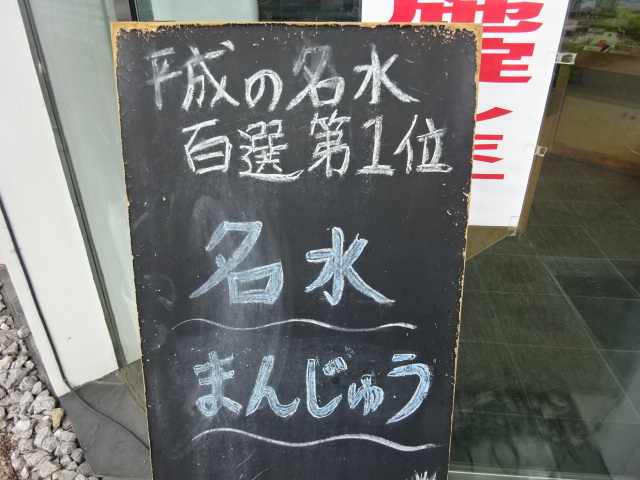 平成の名水
百選第1位
名水
まんじゅう